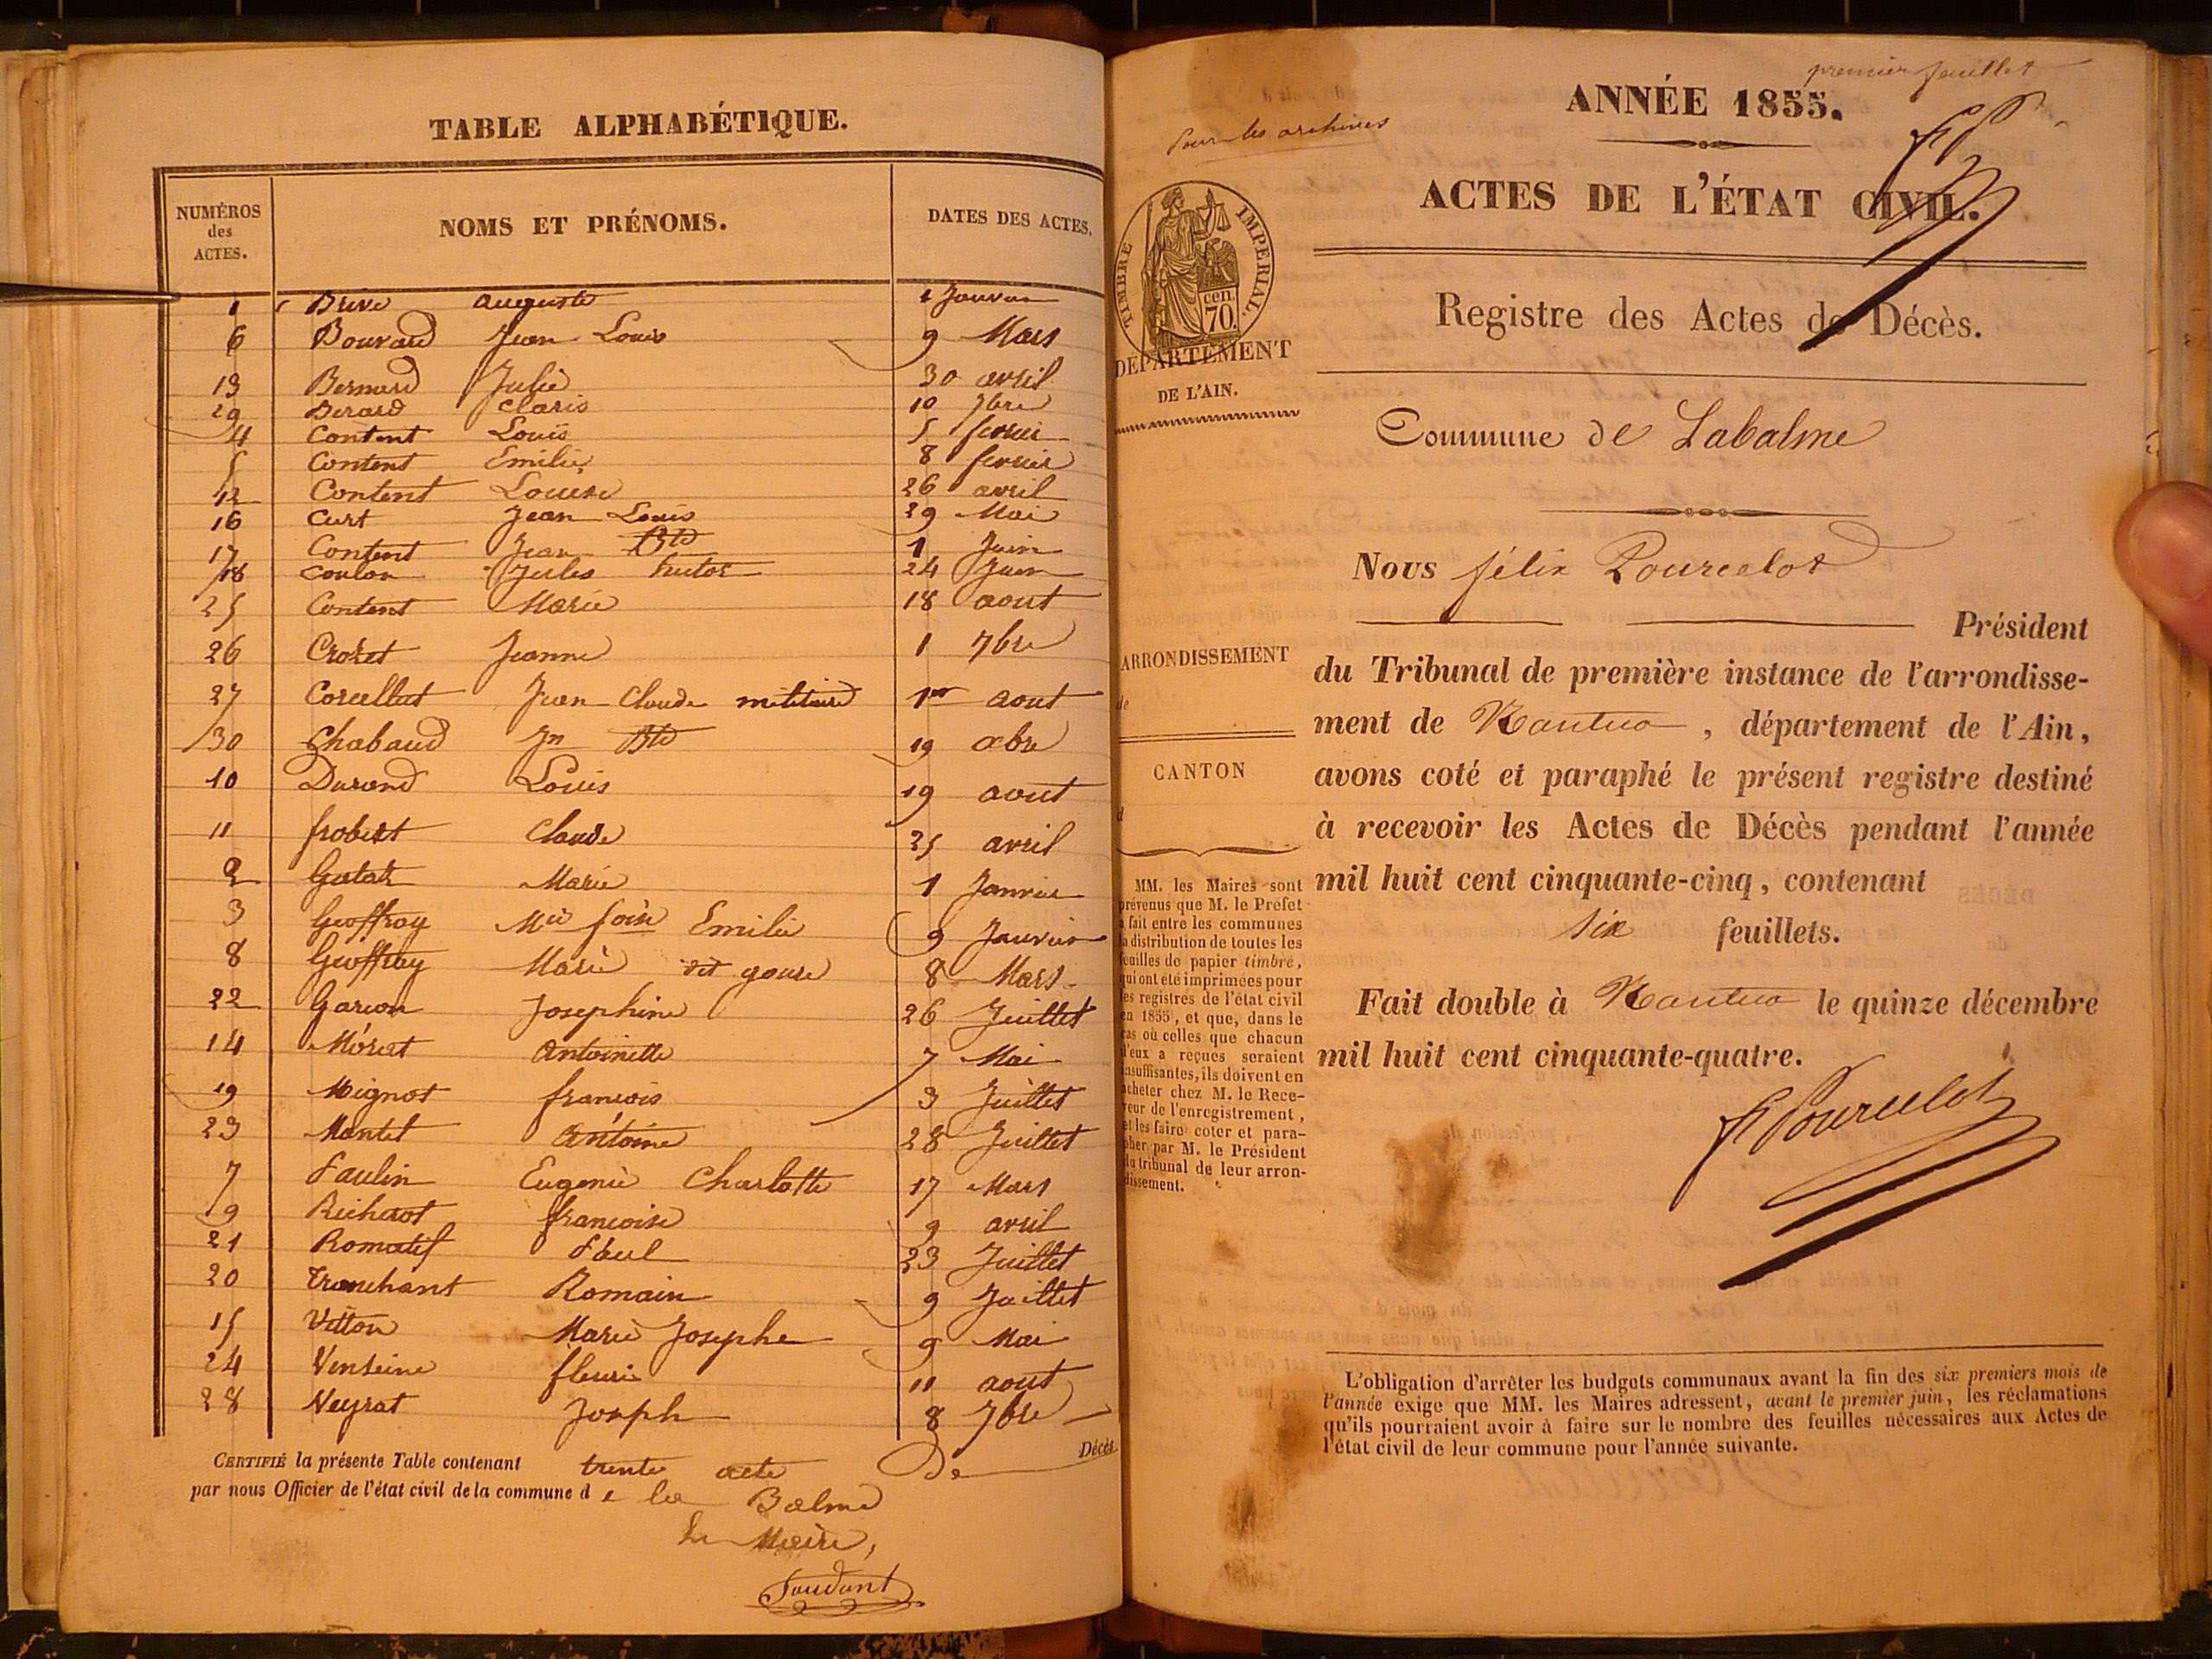 TABLE ALPHABÉTIQUE.
NUMÉROS des ACTES.
NOMS ET PRÉNOMS.
DATES DES ACTES.
1 Brive auguste 1 Janvier
6 Bouvard Jean Louis 9 Mars
13 Bernard Julie 30 avril
29 Berard Claris 10 7bre
4 Content Louis 5 fevrier
5 Content Emilie 8 fevrier
12 Content Louise 26 avril
16 Curt Jean Louis 29 Mai
17 Content Jean Bte 1 Juin
18 Coulon Jules 24 Juin
25 Content Marie 18 aout
26 Crozet Jeanne 1 7bre
27 Corcellut Jean Claude militaire 1er aout
30 Chabaud Jn Bte 19
10 Durand Louis 19 aout
11 frobert Claude 25 avril
2 Marie 1 Janvier
3 Geoffray Mie Emilie 9 Janvier
8 Geoffray Marie dit 8 Mars
22 Josephine 26 Juillet
14 Antoinette 7 Mai
19 Mignot francois 3 Juillet
23 Montel Antoine 28 Juillet
7 Paulin Eugenie Charlotte 17 Mars
9 Richarot francoise 9 avril
21 Romatif Paul 23 Juillet
20 Tranchant Romain 9 Juillet
15 Vitton Marie Josephe 9 Mai
24 fleurie 11 aout
28 Neyrat Joseph 8 7bre
CERTIFIÉ la présente Table contenant trente acte De Décès
par nous Officier de l'état civil de la commune d e la Balme
Le Maire,
premier feuillet
Pour les archives
ANNÉE 1855.
ACTES DE L'ÉTAT CIVIL.
Registre des Actes de Décès.
TIMBRE IMPERIAL.
cen. 70.
DÉPARTEMENT
DE L'AIN.
Commune de Labalme
Nous félix Pourcelot
Président
du Tribunal de première instance de l'arrondisse-
ment de Nantua, département de l'Ain,
avons coté et paraphé le présent registre destiné
à recevoir les Actes de Décès pendant l'année
mil huit cent cinquante-cinq, contenant
six feuillets.
Fait double à Nantua le quinze décembre
mil huit cent cinquante-quatre.
Pourcelot
ARRONDISSEMENT
de
CANTON
d
MM. les Maires sont
prévenus que M. le Préfet
a fait entre les communes
la distribution de toutes les
feuilles de papier timbré,
qui ont été imprimées pour
les registres de l'état civil
en 1855, et que, dans le
cas où celles que chacun
d'eux a reçues seraient
insuffisantes, ils doivent en
acheter chez M. le Rece-
veur de l'enregistrement,
et les faire coter et para-
pher par M. le Président
du tribunal de leur arron-
dissement.
L'obligation d'arrêter les budgets communaux avant la fin des six premiers mois de
l'année exige que MM. les Maires adressent, avant le premier juin, les réclamations
qu'ils pourraient avoir à faire sur le nombre des feuilles nécessaires aux Actes de
l'état civil de leur commune pour l'année suivante.